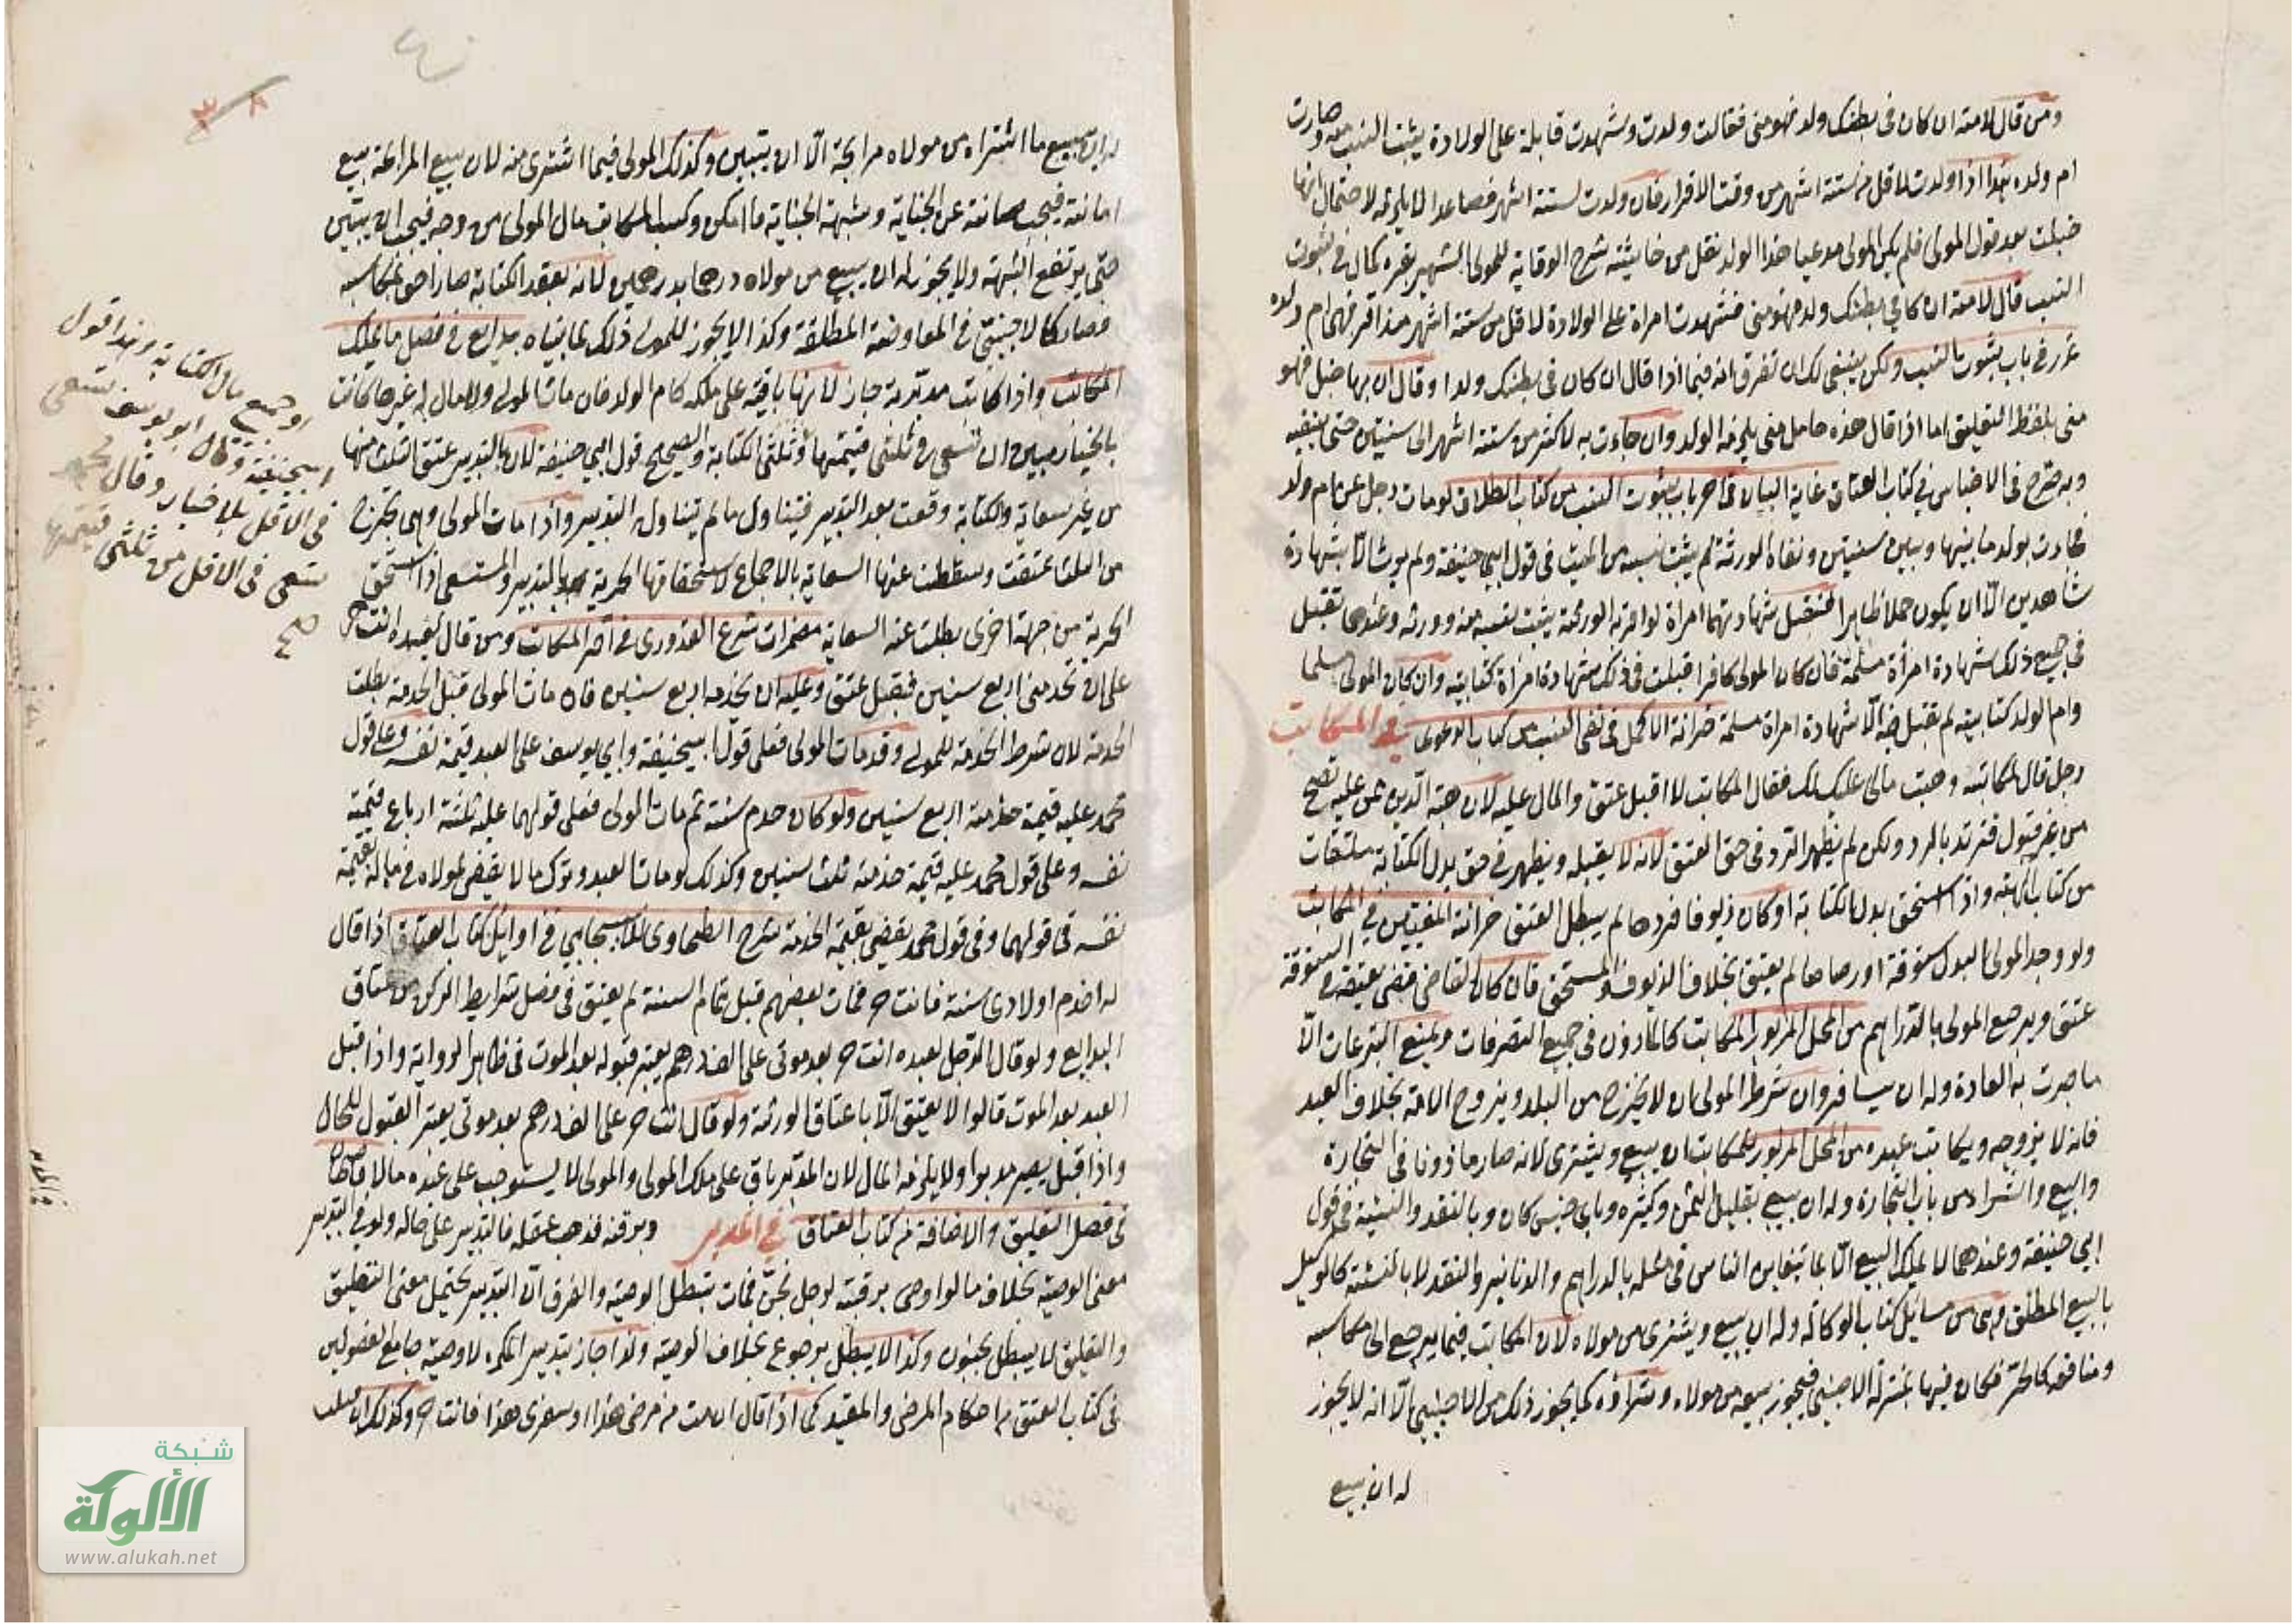 ومن قال لامته ان كان فى بطنك ولد فهو منى فقالت ولدت وشهدت قابلة على الولادة يثبت النسب منه وصارت
ام ولده هذا اذا ولدت لاقل من ستة اشهر من وقت الاقرار فان ولدت لستة اشهر فصاعدا لا يلزمه لاحتمال انها
حبلت بعد قول المولى فلم يكن المولى مدعيا هذا الولد نقل من حاشية شرح الوقاية للمولى الشهير بقره كمال فى ثبوت
النسب قال لامته ان كان فى بطنك ولد فهو منى فشهدت امراة على الولادة لاقل من ستة اشهر منذ اقر فهى ام ولده
غرر فى باب ثبوت النسب ولكن ينبغى لك ان تفرق انه فيما اذا قال ان كان فى بطنك ولد او قال ان بها حبل فهو
منى بلفظ التعليق اما اذا قال هذه حامل منى يلزمه الولد وان جاءت به لاكثر من ستة اشهر الى سنتين حتى ينفيه
وبه صرح فى الاجناس فى كتاب العتاق غاية البيان فى آخر باب ثبوت النسب من كتاب الطلاق لو مات رجل عن ام ولد
فجاءت بولد ما بينها وبين سنتين ونفاه الورثة لم يثبت نسبه من الميت فى قول ابى حنيفة ولم يورث الا بشهادة
شاهدين الا ان يكون حملا ظاهرا فتقبل شهادتهما امراة لو اقر به الورثة يثبت نسبه منه وورثه وعندهما تقبل
فى جميع ذلك شهادة امرأة مسلمة فان كان المولى كافرا قبلت فى ذلك شهادة امراة كتابية وان كان المولى مسلما
وام الولد كتابية لم يقبل فيه الا شهادة امراة مسلمة خزانة الاكمل فى نفى النسب من كتاب الدعوى فى المكاتب
رجل قال لمكاتبه وهبت مالى عليك لك فقال المكاتب لا اقبل عتق والمال عليه لان هبة الدين ممن عليه تصح
من غير قبول فترتد بالرد ولكن لم يظهر الرد فى حق العتق لانه لا يقبله ويظهر فى حق بدل الكتابة ملتقطات
من كتاب الهبة واذا استحق بدل الكتابة او كان زيوفا فردها لم يبطل العتق خزانة المفتيين فى المكاتب
ولو وجد المولى البدل ستوقة او رصاصا لم يعتق بخلاف الزيوف والمستحق فان كان القاضى قضى بعتقه فى الستوقة
عتق ويرجع المولى بالدراهم من المحل المزبور المكاتب كالمأذون فى جميع التصرفات ويمنع التبرعات الا
ما جرت به العادة وله ان يسافر وان شرط المولى ان لا يخرج من البلد ويزوج الامة بخلاف العبد
فانه لا يزوجه ويكاتب عبده من المحل المزبور للمكاتب ان يبيع ويشترى لانه صار ماذونا فى التجارة
والبيع والشراء من باب التجارة وله ان يبيع بقليل الثمن وكثيره وباى جنس كان وبالنقد والنسيئة فى قول
ابى حنيفة وعندهما لا يملك البيع الا بما يتغابن الناس فى مثله بالدراهم والدنانير والنقد لا بالنسيئة كالوكيل
بالبيع المطلق وهى من مسائل كتاب الوكالة وله ان يبيع ويشترى من مولاه لان المكاتب فيما يرجع الى مكاسبه
ومنافعه كالحر فكان فيها بمنزلة الاجنبى فيجوز بيعه من مولاه وشراؤه كما يجوز ذلك من الاجنبى الا انه لا يجوز
له ان يبيع
له ان يبيع ما اشتراه من مولاه مرابحة الا ان يتبين وكذلك المولى فيما اشترى منه لان بيع المرابحة بيع
امانة فيجب صيانته عن الخيانة وشبهة الخيانة ما امكن وكسب المكاتب مال المولى من وجه فيجب ان يتبين
حتى يرتفع الشبهة ولا يجوز له ان يبيع من مولاه درهما بدرهمين لانه بعقد الكتابة صار احق بمكاسبه
فصار كالاجنبى فى المعاوضة المطلقة وكذا لا يجوز للمولى ذلك لما بيناه بدايع فى فصل ما يملك
المكاتب واذا كاتب مدبرته جاز لانها باقية على ملكه كام الولد فان مات المولى ولا مال له غيرها كانت
بالخيار بين ان تسعى فى ثلثى قيمتها وثلثى الكتابة والصحيح قول ابى حنيفة لان بالتدبير عتق الثلث منها
من غير سعاية والكتابة وقعت بعد التدبير فيتناول ما لم يتناول التدبير واذا مات المولى وهى تخرج
من الثلث عتقت وسقطت عنها السعاية بالاجماع لاستحقاقها الحرية بالتدبير والمستسعى اذا استحق
الحرية من جهة اخرى بطلت عنه السعاية مضمرات شرح القدورى فى آخر المكاتب ومن قال لعبده انت حر
على ان تخدمنى اربع سنين فقبل عتق وعليه ان يخدمه اربع سنين فان مات المولى قبل الخدمة بطلت
الخدمة لان شرط الخدمة للمولى وقد مات المولى فعلى قول ابى حنيفة وابى يوسف على العبد قيمة نفسه وعلى قول
محمد عليه قيمة خدمة اربع سنين ولو كان خدم سنة ثم مات المولى فعلى قولهما عليه ثلثة ارباع قيمة
نفسه وعلى قول محمد عليه قيمة خدمة ثلث سنين وكذلك لو مات العبد وترك مالا يقضى لمولاه فى ماله بقيمة
نفسه فى قولهما وفى قول محمد يقضى بقيمة الخدمة شرح الطحاوى للاسبيجابى فى اوائل كتاب العتاق اذا قال
له اخدم اولادى سنة فانت حر فمات بعضهم قبل تمام السنة لم يعتق فى فصل شرايط الركن من عتاق
البدايع ولو قال الرجل لعبده انت حر بعد موتى على الف درهم يعتبر قبوله بعد الموت فى ظاهر الرواية واذا قبل
العبد بعد الموت قالوا لا يعتق الا باعتاق الورثة ولو قال انت حر على الف درهم بعد موتى يعتبر القبول للحال
واذا قبل يصير مدبرا ولا يلزمه المال لان المدبر باق على ملك المولى والمولى لا يستوجب على عبده مالا قاضيخان
فى فصل التعليق والاضافة من كتاب العتاق فى المدبر دبر قنه فذهب عقله فالتدبير على حاله ولو فى التدبير
معنى الوصية بخلاف ما لو اوصى برقبته لرجل فجن فمات تبطل الوصية والفرق ان التدبير يحتمل معنى التعليق
والتعليق لا يبطل بجنون وكذا لا يبطل برجوع بخلاف الوصية ولذا جاز تدبير المكره لا وصيته جامع الفصولين
فى كتاب العتق من احكام المرضى والمقيد كما اذا قال ان مت من مرضى هذا او سفرى هذا فانت حر وكذلك ان
وجميع مال الكتابة وهذا قول
ابى حنيفة وقال ابو يوسف تسعى
فى الاقل بلا خيار وقال محمد
تسعى فى الاقل من ثلثى قيمتها
صح
شبكة
الألوكة
www.alukah.net